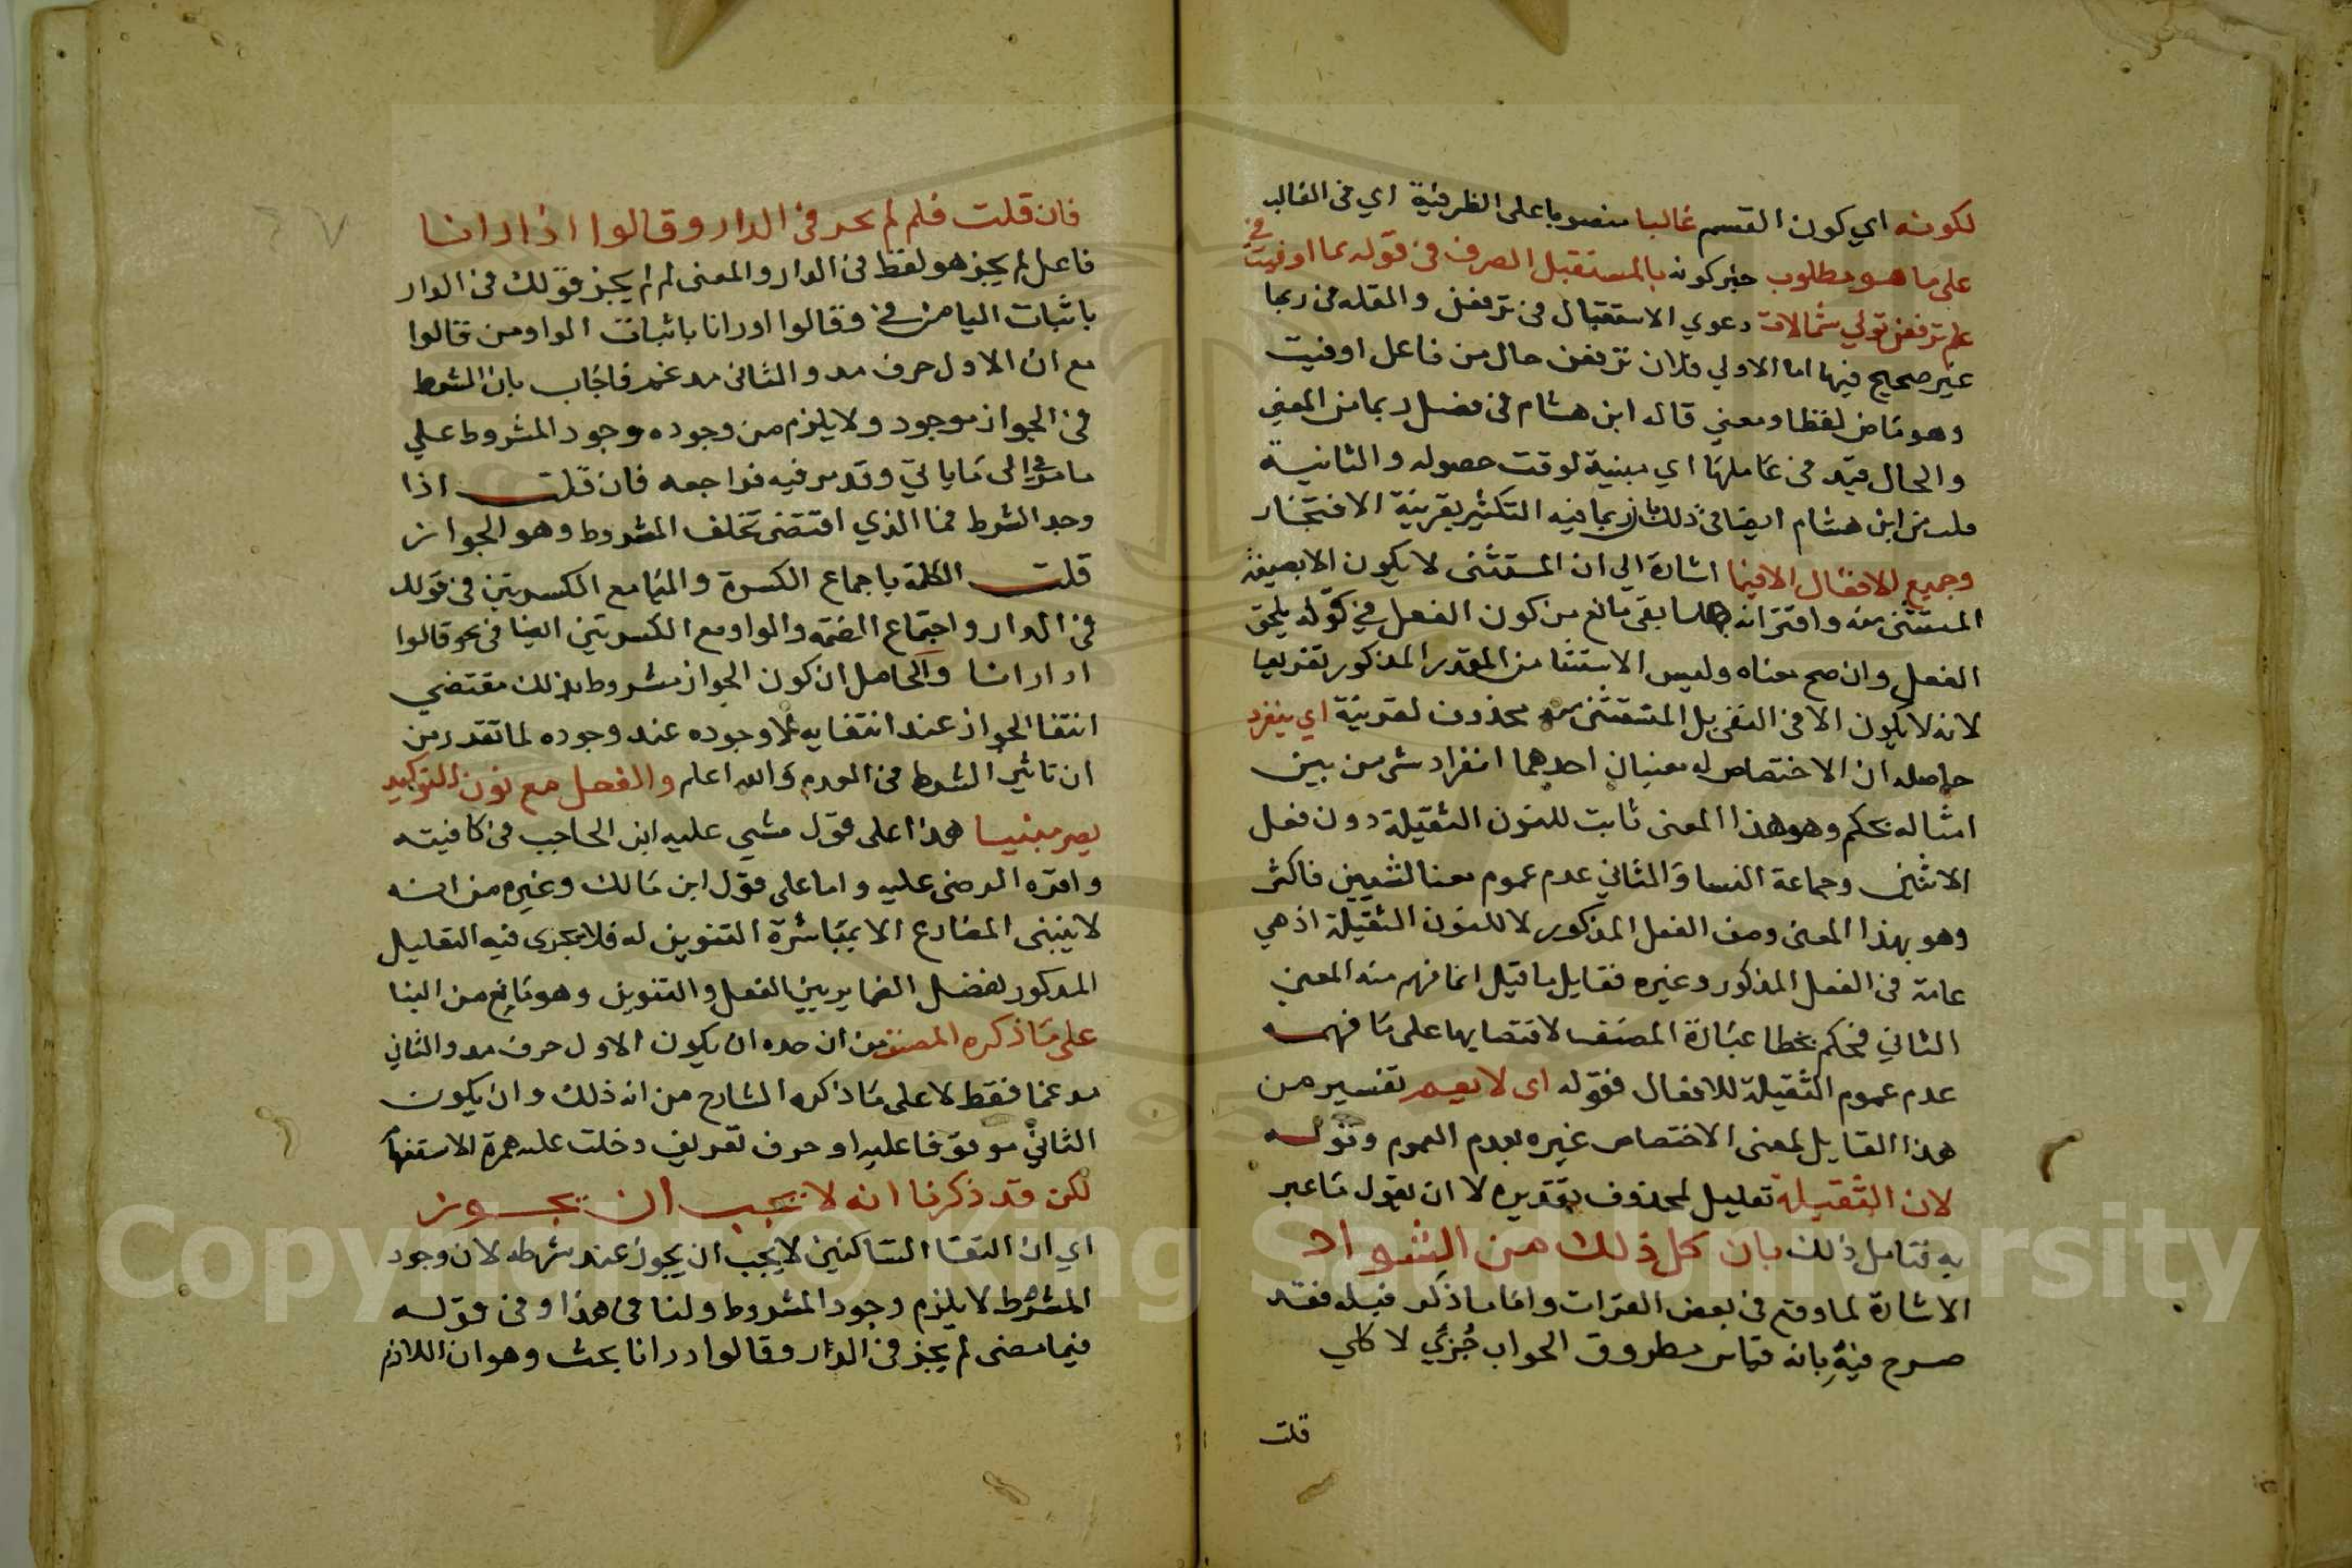 لكونه اي كون القسم غالبا منصوبا على الظرفية اي في الغالب
على ما هو مطلوب خبر كونه بالمستقبل الصرف في قوله بما اوفيت في
علم ترفعن ثوبي شمالات دعوي الاستقبال في ترفعن والمقله في ربما
غير صحيح فيها اما الاولي فلان ترفعن حال من فاعل اوفيت
وهو ماض لفظا ومعني قاله ابن هشام في فصل ربما من المغني
والحال قيد في عاملها اي مبنية لوقت حصوله والثانية
ابن هشام ايضا في ذلك بان ربما فيه التكثير بقرينة الافتخار
وجميع الافعال الا فيما اشارة الي ان المستثنى لا يكون الا بصيغة
المستثنى منه واقترانه بما بقي مانع من كون الفعل في قوله يلحق
الفعل وان صح معناه وليس الاستثنا من المقدر المذكور تفريعا
لانه لا يكون الا في النفي بل المستثنى منه محذوف لقرينة اي ينفرد
حاصله ان الاختصاص له معنيان احدهما انفراد شي من بين
امثاله بحكم وهو هذا المعنى ثابت للنون الثقيلة دون فعل
الاثنين وجماعة النسا والثاني عدم عموم معنا لشيين فاكثر
وهو بهذا المعنى وصف الفعل المذكور لا للنون الثقيلة اذ هي
عامة في الفعل المذكور وغيره فقايل ما قيل انما فهم منه المعني
الثاني فحكم بخطا عبارة المصنف لاقتضايها على ما فهمه
عدم عموم الثقيلة للافعال فقوله اى لا يعم تفسير من
هذا القايل لمعنى الاختصاص غيره بعدم العموم وقوله
لان الثقيلة تعليل لمحذوف تقديره لا ان نقول ما عبر
به فتامل ذلك بان كل ذلك من الشواد
الاشارة لما وقع في بعض القرات واما ما ذكر قبله فقد
صرح فيه بانه قياس مطروق الجواب جُزئي لا كلي
قلت
فان قلت فلم لم يجز في الدار وقالوا اذاراناا
فاعل لم يجز هو لفظ في الدار والمعنى لم لم يجز قولك في الدار
باثبات اليا من في وقالوا ادرانا باثبات الواو من قالوا
مع ان الاول حرف مد والثاني مدغم فاجاب بان الشرط
في الجواز موجود ولا يلزم من وجوده وجود المشروط علي
ما مر في الى ما ياتي وقد مر فيه فراجعه فان قلت اذا
وجد الشرط فما الذي اقتضى تخلف المشروط وهو الجواز
قلت الكلمة باجماع الكسرة واليا مع الكسرتين في قولك
في الدار واجتماع الضمة والواو مع الكسرتين ايضا في نحو قالوا
ادارانا والحاصل ان كون الجواز مشروط بذلك مقتضي
انتفا الجواز عند انتفايه لا وجوده عند وجوده لما تقدر من
ان تاثير الشرط في العدم والله اعلم والفعل مع نون التوكيد
يصر مبنيا هذا على قول مشي عليه ابن الحاجب في كافيته
واقره الرضي عليه واما على قول ابن مالك وغيره من انه
لا يبنى المضارع الا بمباشرة التنوين له فلا يجرى فيه التعليل
المذكور لفصل الضماير بين الفعل والتنوين وهو مانع من البنا
على ما ذكره المصنف من ان حده ان يكون الاول حرف مد والثاني
مدغما فقط لا على ما ذكره الشارح من انه ذلك وان يكون
الثاني موقوفا عليه او حرف تعريف دخلت عليه همزة الاستفهام
لكن قد ذكرنا انه لا يجب ان يجوز
اي ان التقا الساكنين لا يجب ان يجوز عند شرطه لان وجود
الشرط لا يلزم وجود المشروط ولنا في هذا وفي قوله
فيما مضى لم يجز في الدار وقالوا ادرانا بحث وهو ان اللازم
Copyright © King Saud University